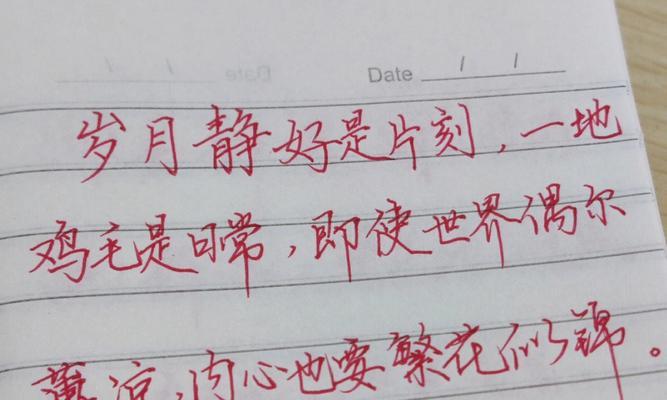 Date / /
岁月静好是片刻，一地
鸡毛是日常，即使世界偶尔
薄凉，内心也要繁花似锦。